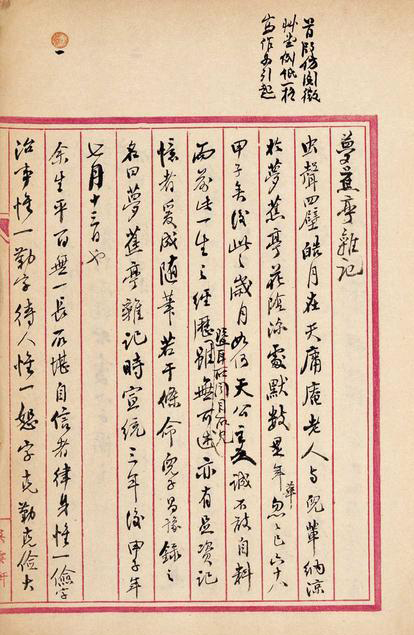 首段仿閱微
艸堂例低一格
寫作為引起
一
夢蕉亭雜記
虫聲四壁皓月在天庸庵老人与児輩納涼
於夢蕉亭花陰深處默數年華忽忽已六十八
甲子矣後此之歲月如何天公主之誠不敢自料
而前此一生之經歷暨耳所聞目所見雖無可述亦有足資記
憶者爰成隨筆若干條命兒子昌豫錄之
名曰夢蕉亭雜記時宣統三年後甲子年
七月十三日也
余生平百無一長所堪自信者律身惟一儉字
治事惟一勤字待人惟一恕字克勤克儉大